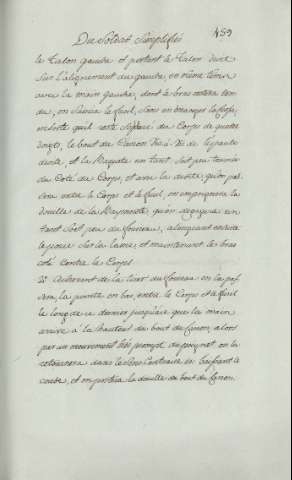 Du Soldat Simplifiée
459
le talon gauche et portant le talon droit
sur l'alignement du gauche, en même tems
avec la main gauche, dont le bras restera ten
du, on saisira le fusil, sans en changer la
en sorte qu'il reste séparé du Corps de quatre
doigts, le bout du Canon vis à vis de la
droite, et la Baguette un tant soit peu tournée
du Coté du Corps, et avec la droite, qu'on pas
sera entre le Corps et le fusil, on empoignera la
douille de la Bayonnette, qu'on degagera un
tant soit peu du foureau, alongeant ensuite
le pouce sur la lame, et maintenant le bras
collé contre le Corps
2 Achevant de la tirer du foureau on la pas
sera, la pointe en bas, entre le Corps et le fusil
le long de ce dernier jusqu'à ce que la main
arrive à la hauteur du bout du Canon, alors
par un mouvement très prompt du poignet on la
retournera dans le sens Contraire en baissant le
coude, et on portera la douille au bout du Canon.